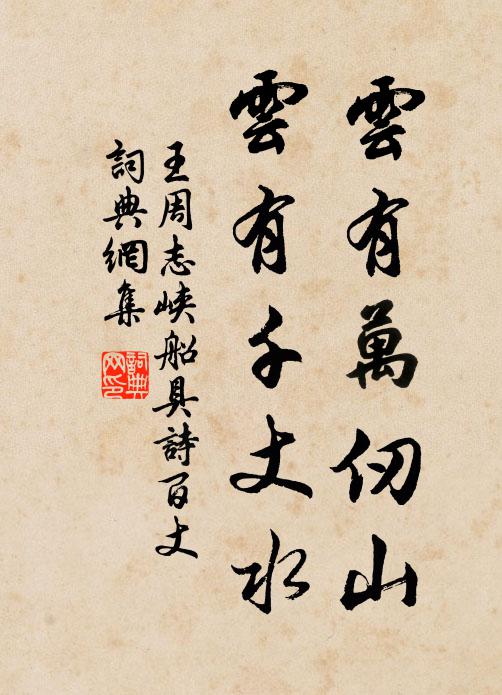 雲有萬仞山
雲有千丈水
王周志峽船具詩百丈
詞典網集
詞典
網印